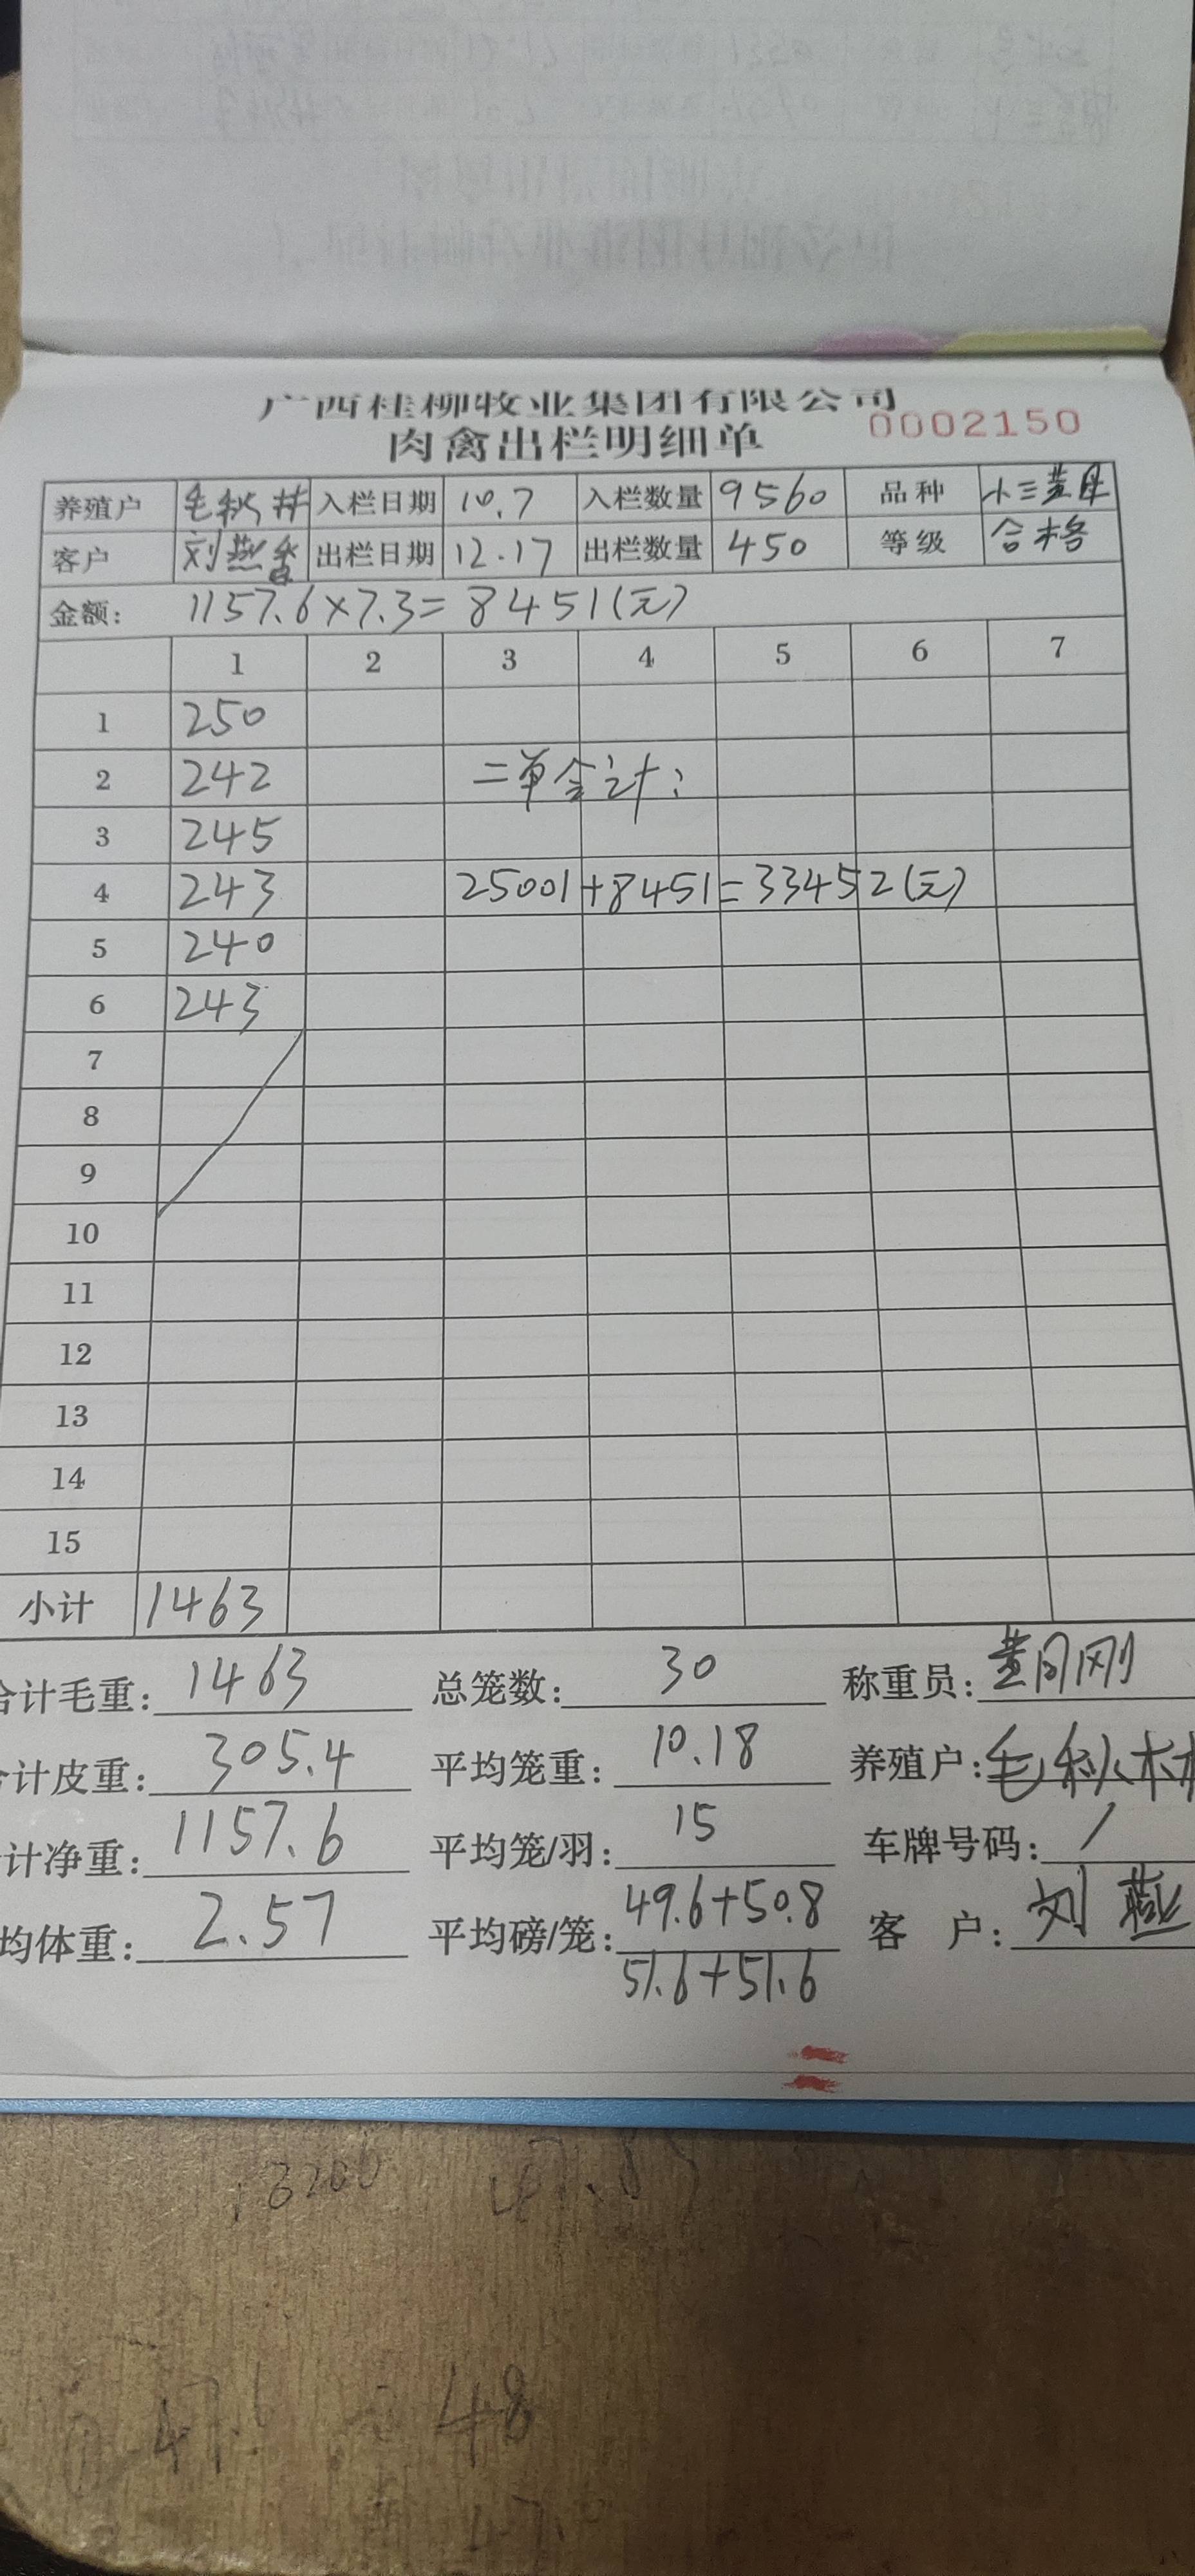 广西桂柳牧业集团有限公司
肉禽出栏明细单 0002150
养殖户 毛秋林 入栏日期 10.7 入栏数量 9560 品种 小三黄母
客户 刘燕香 出栏日期 12.17 出栏数量 450 等级 合格
金额: 1157.6×7.3=8451(元)
1 2 3 4 5 6 7
1 250
2 242 二单合计:
3 245
4 243 25001+8451=33452(元)
5 240
6 243
7
8
9
10
11
12
13
14
15
小计 1463
合计毛重: 1463 总笼数: 30 称重员: 黄月刚
计皮重: 305.4 平均笼重: 10.18 养殖户: 毛秋林
计净重: 1157.6 平均笼/羽: 15 车牌号码: /
均体重: 2.57 平均磅/笼: 49.6+50.8 客户: 刘燕
51.6+51.6
48